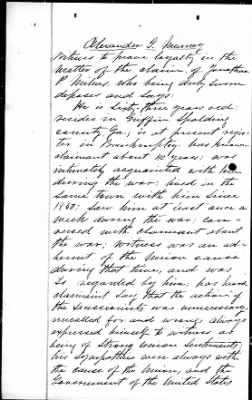 Alexander G. Murray
Witness to prove loyalty in the
matter of the claim of Jonathan
P. Milner, who being duly sworn
deposes and says:
He is sixty three years old
resides in Griffin Spalding
county Ga., is at present regis
ter in Bankruptcy has known
claimant about 40 years; was
intimately acquainted with him
during the war; lived in the
same town with him since
1865; saw him at least once a
week during the war; con-
versed with claimant about
the war; Witness was an ad-
herent of the Union cause
during that time, and was
so regarded by him; has heard
claimant say that the action of
the secessionists was unnecessary,
uncalled for and wrong; always
expressed himself to witness as
being of strong Union sentiments;
his sympathies were always with
the cause of the Union, and the
Government of the United States